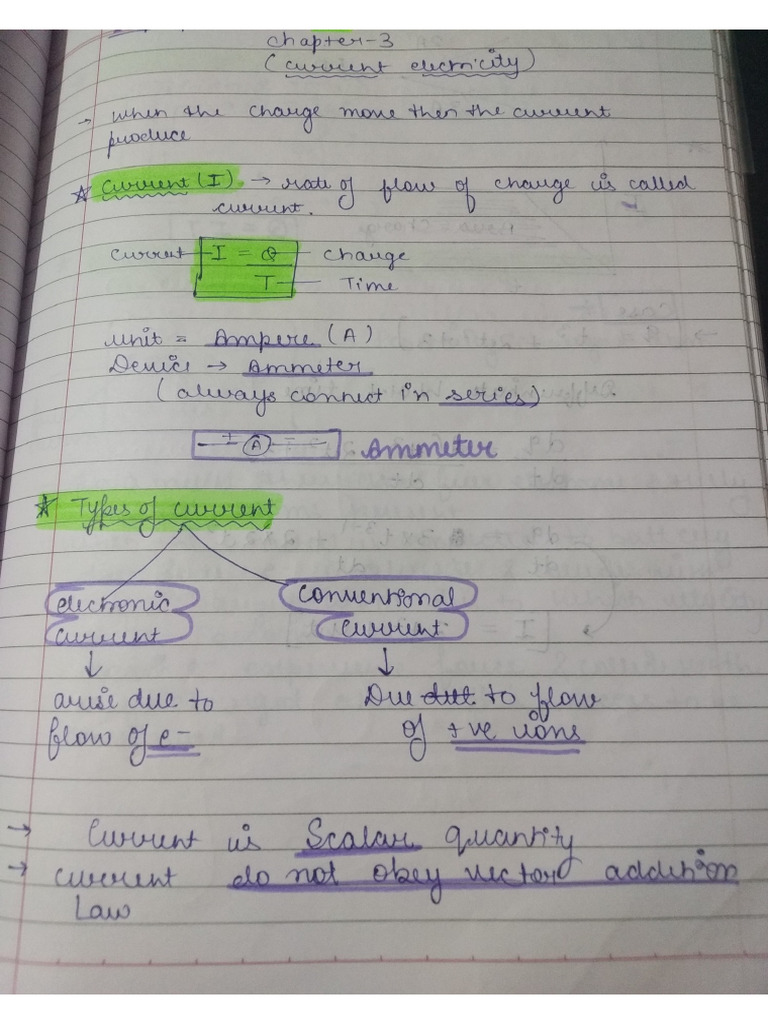 chapter-3
(current electricity)
→ when the charge move then the current
produce
☆ current (I) → rate of flow of charge is called
current.
current — I = Q — charge
T — Time
unit = Ampere (A)
Device → Ammeter
(always connect in series)
+ (A) - Ammeter
☆ Types of current
electronic conventional
current current
↓ ↓
arise due to Due to flow
flow of e- of +ve ions
→ Current is Scalar quantity
→ current do not obey vector addition
Law